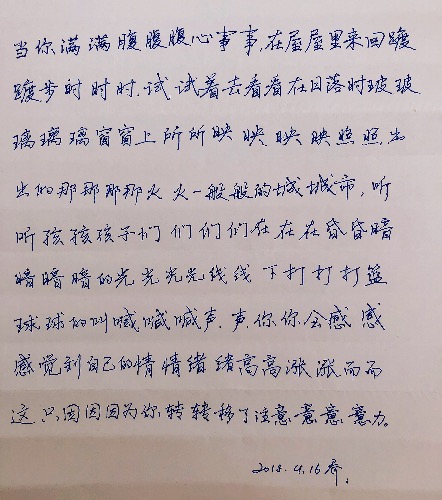 当你满满腹腹腹心事事,在屋屋里来回踱
踱步时时时.试试着去看看在日落时玻玻
璃璃璃窗窗上所所映映映映照照.出
出的那那那那火火一般般的城城市,听
听孩孩孩子们们们们在在在昏昏暗
暗暗暗的光光光光线线下打打打篮
球球的叫喊喊喊声.声.你你会感感
感觉到自己的情情绪绪高高涨涨而而
这只因因因为你转转移了注意意意意力。
2018.4.16春.